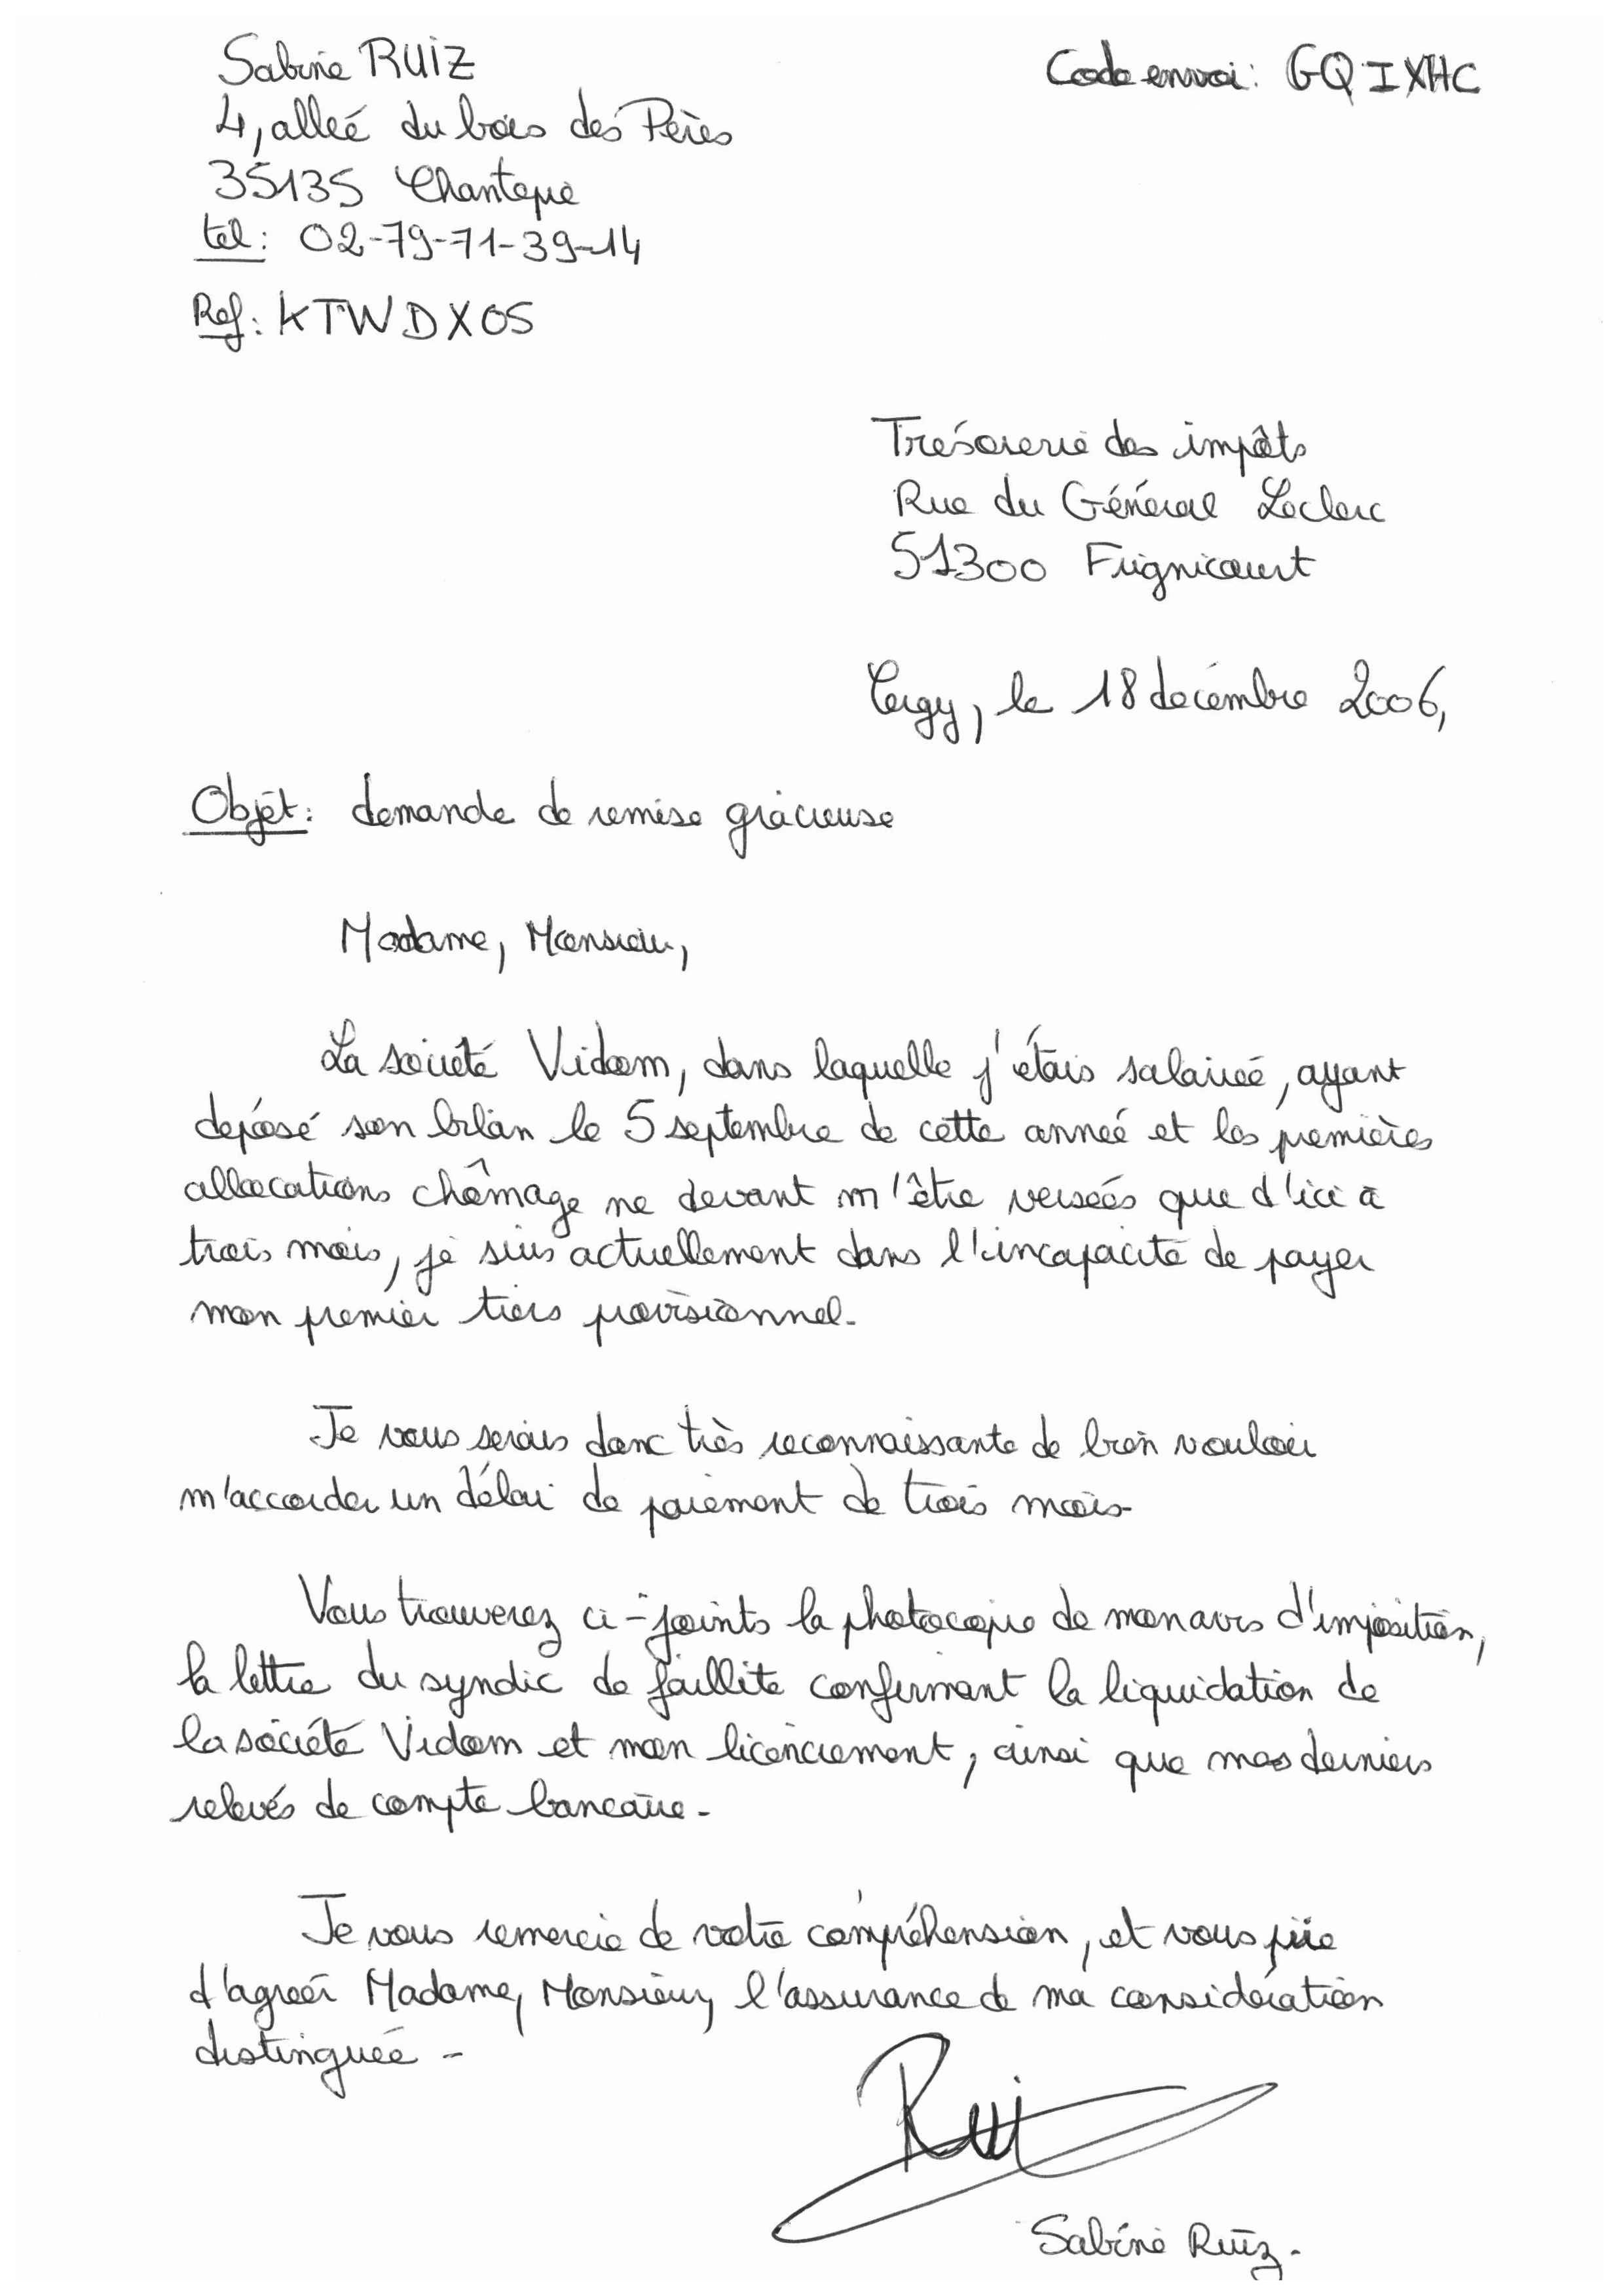 Sabine RUIZ
Code envoi : GQIXHC
4, allée du bois des Pères
35135 Chantepie
tel : 02-79-71-39-14
Ref : KTWDX05
Trésorerie des impôts
Rue du Général Leclerc
51300 Frignicourt
Cergy, le 18 décembre 2006,
Objet : demande de remise gracieuse
Madame, Monsieur,
La société Vidom, dans laquelle j'étais salariée, ayant
déposé son bilan le 5 septembre de cette année et les premières
allocations chômage ne devant m'être versées que d'ici à
trois mois, je suis actuellement dans l'incapacité de payer
mon premier tiers provisionnel.
Je vous serais donc très reconnaissante de bien vouloir
m'accorder un délai de paiement de trois mois.
Vous trouverez ci-joints la photocopie de mon avis d'imposition,
la lettre du syndic de faillite confirmant la liquidation de
la société Vidom et mon licenciement, ainsi que mes derniers
relevés de compte bancaire.
Je vous remercie de votre compréhension, et vous prie
d'agréer Madame, Monsieur, l'assurance de ma considération
distinguée -
Rui
Sabine Ruiz.